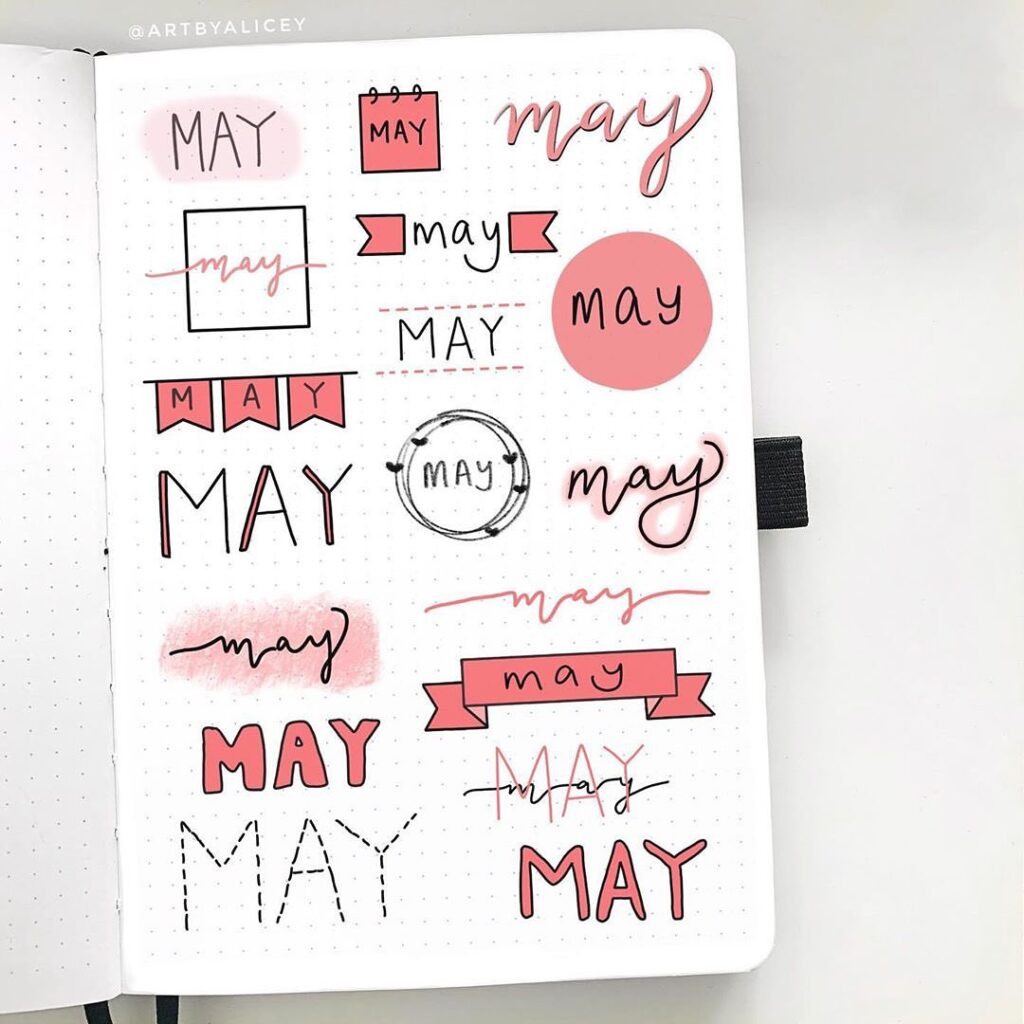 @ARTBYALICEY
MAY
MAY
may
may
may
may
MAY
MAY
MAY
MAY
may
may
may
may
MAY
MAY
may
MAY
MAY